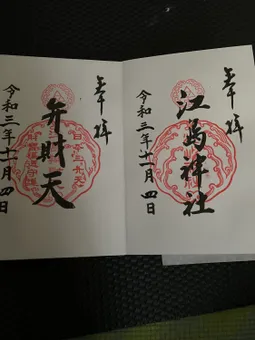 奉拝
江島神社
令和三年十一月四日
奉拝
弁財天
令和三年十一月四日